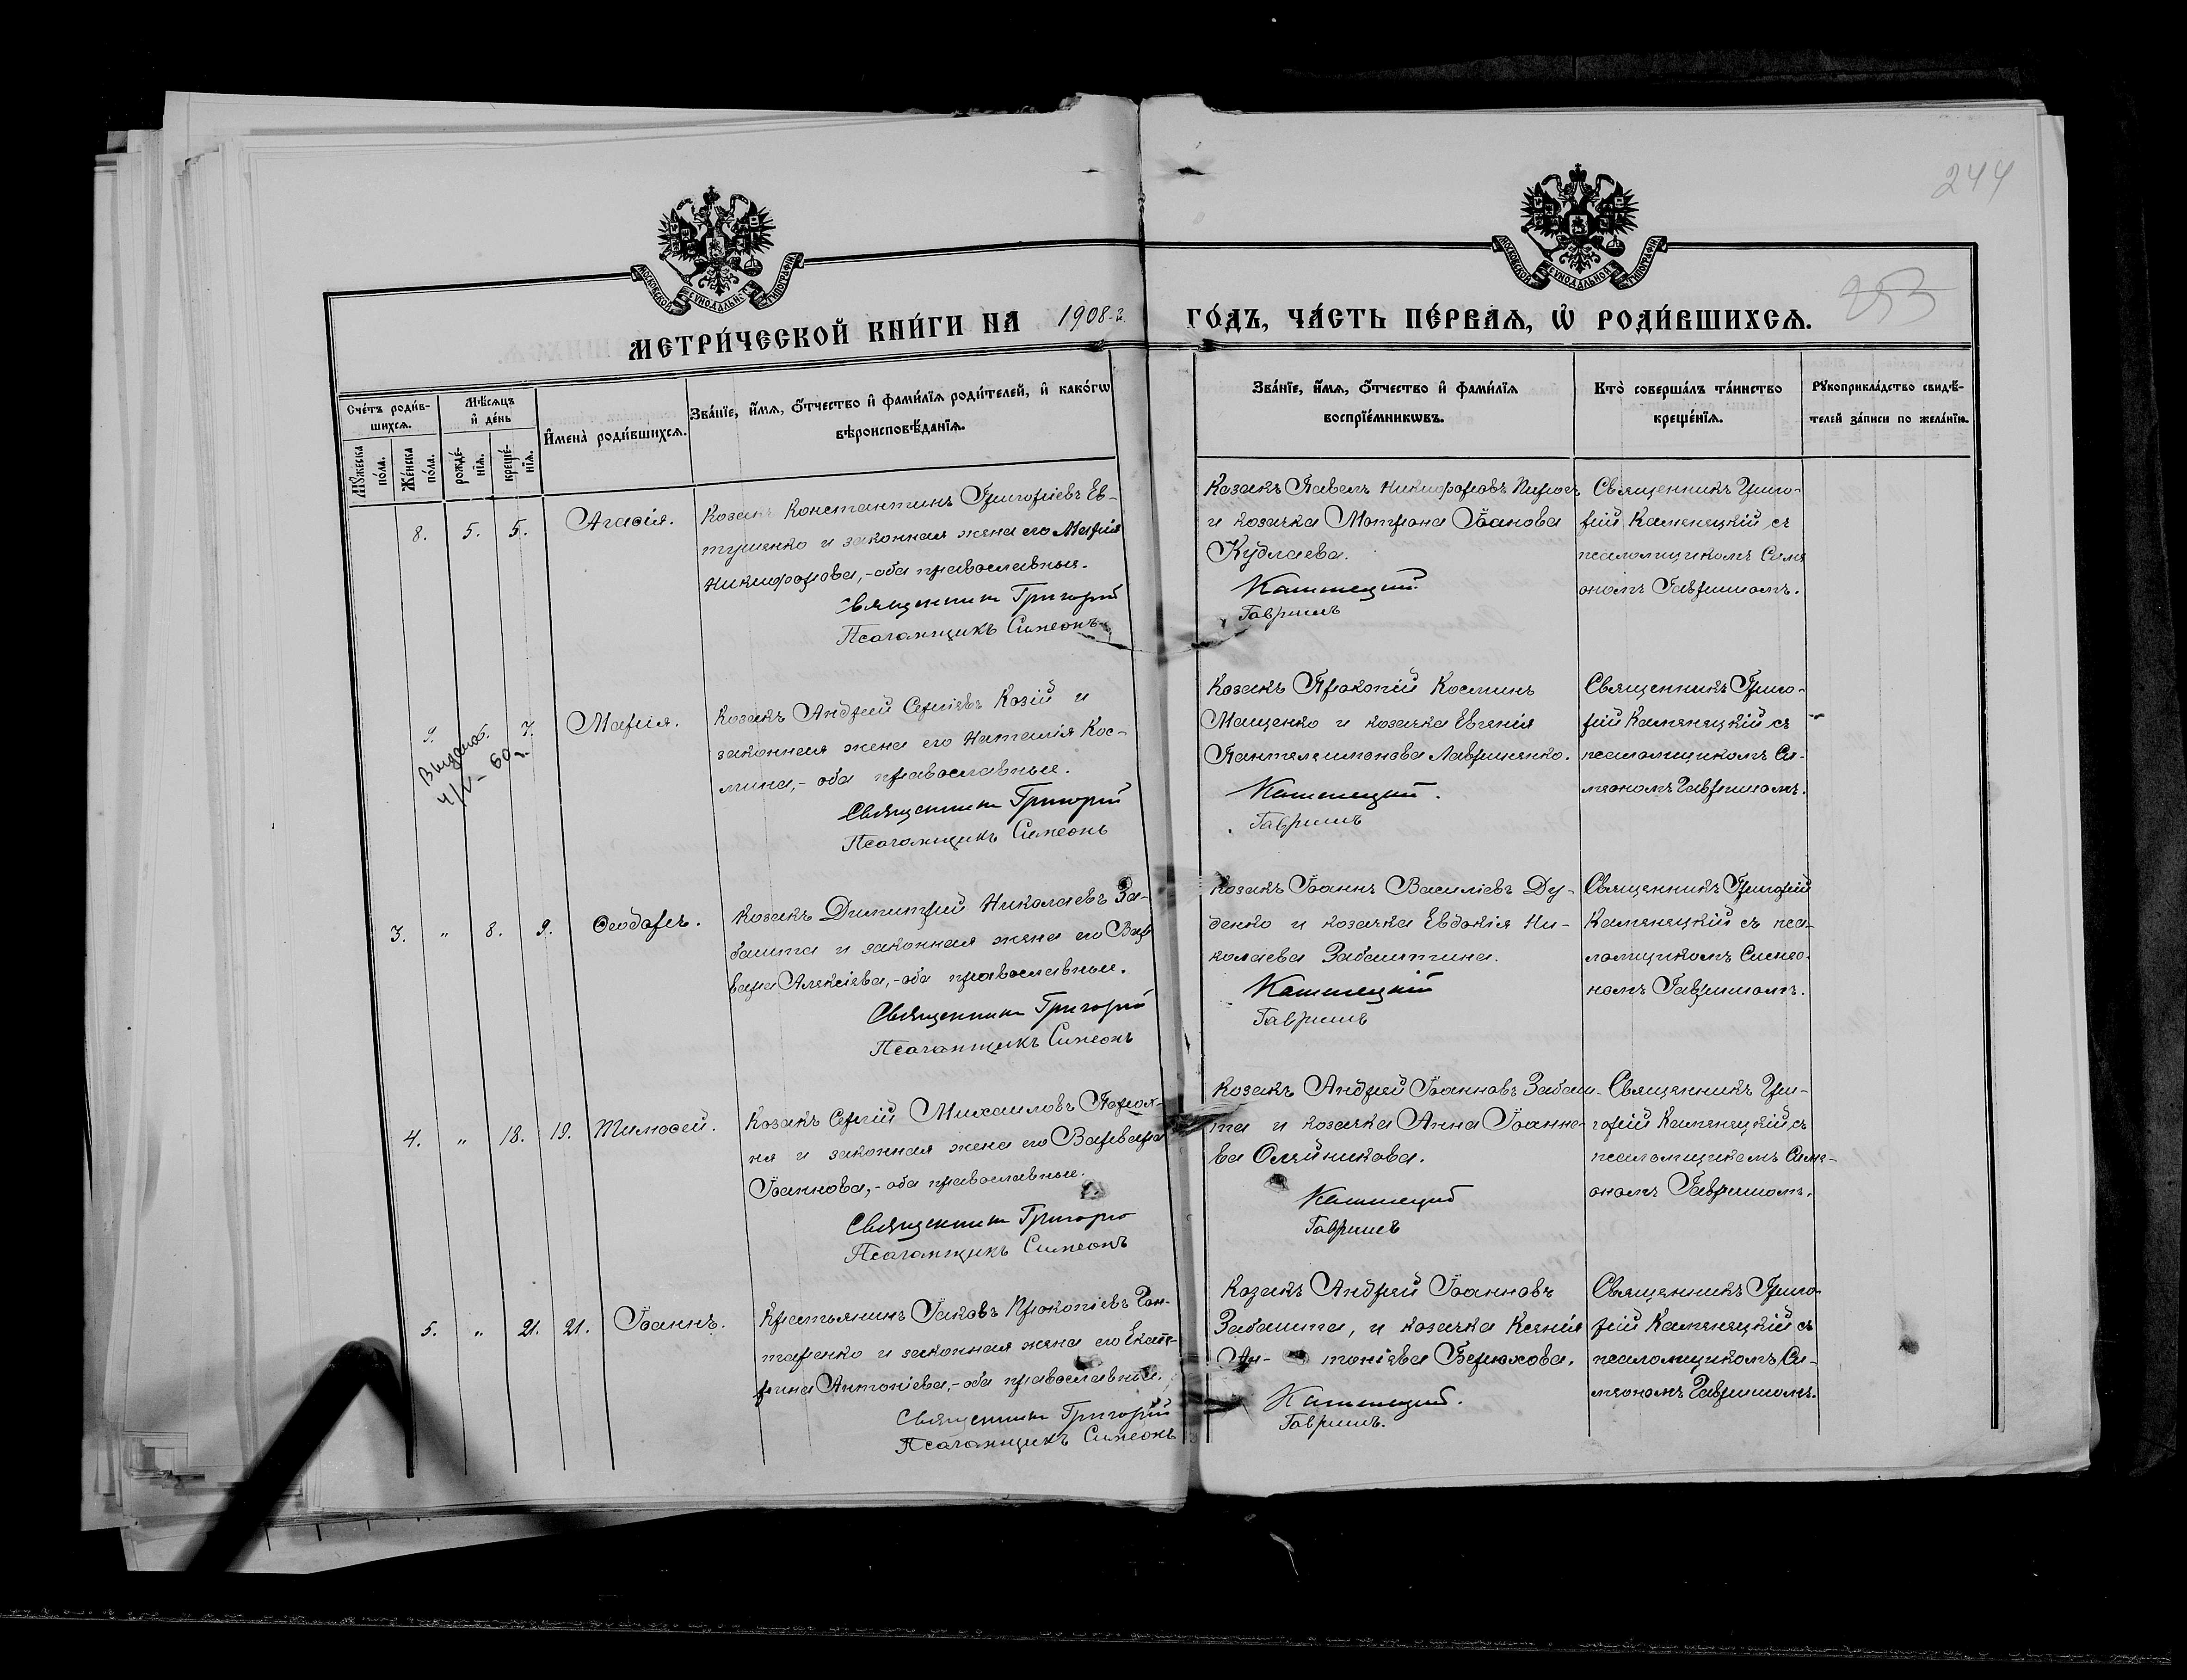 244
253
МОСКОВСКОЙ СѴНОДАЛЬНОЙ ТИПОГРАФІИ
МОСКОВСКОЙ СѴНОДАЛЬНОЙ ТИПОГРАФІИ
МЕТРИ́ЧЕСКОЙ КНИ́ГИ НА 1908 г. ГО́ДЪ, ЧА́СТЬ ПЕ́РВАѦ, Ѡ҆ РОДИ́ВШИХСѦ.
Сче́тъ роди́в-
шихсѧ.
Мꙋ́жеска по́ла.
Же́нска по́ла.
Мѣ́сѧцъ и҆ де́нь
рожде́-нїѧ.
креще́-нїѧ.
И҆мена̀ роди́вшихсѧ.
Зва́нїе, и҆́мѧ, ѻ҆́тчество и҆ фами́лїѧ роди́телей, и҆ како́гѡ
вѣроисповѣ́данїѧ.
Зва́нїе, и҆́мѧ, ѻ҆́тчество и҆ фами́лїѧ
воспрїе́мникѡвъ.
Кто̀ соверша́лъ та́инство
креще́нїѧ.
Рꙋкоприкла́дство свидѣ́-
телей за́писи по жела́нїю.
8. 5. 5. Агасія.
Козакъ Константинъ Григоріевъ Ев-
тушенко и законная жена его Марія
Никифорова,-оба православные.
Священникъ Григорій
Псаломщикъ Симеонъ
Козакъ Павелъ Никифоровъ Пирогъ
и козачка Мотрона Іоанова
Кудлаева.
Каменецкій.
Гавришъ
Священникъ Григо-
рій Каменецкій съ
псаломщикомъ Симе
ономъ Гавришомъ.
9. 6. 7. Марія.
Выдано
4/V - 60
Козакъ Андрей Сергіевъ Козій и
законная жена его Наталія Кос-
мина,- оба православные.
Священникъ Григорій
Псаломщикъ Симеонъ
Козакъ Прокопій Косминъ
Мащенко и козачка Евгенія
Пантелеимонова Лавриненко.
Каменецкій.
Гавришъ
Священникъ Григо-
рій Каменецкій съ
псаломщикомъ Си-
меономъ Гавришомъ.
3. " 8. 9. Ѳеодоръ.
Козакъ Димитрий Николаевъ За-
башта и законная жена его Вар
вара Алексіева,-оба православные.
Священникъ Григорій
Псаломщикъ Симеонъ
Козакъ Іоаннъ Василіевъ Ду-
денко и козачка Евдокія Ни-
колаева Забаштина.
Каменецкій
Гавришъ
Священникъ Григорій
Каменецкій съ пса-
ломщикомъ Симео-
номъ Гавришомъ.
4. " 18. 19. Тимоѳей.
Козакъ Сергій Михаиловъ
и законная жена его Варвара
Іоаннова,-оба православные.
Священникъ Григорій
Псаломщикъ Симеонъ
Козакъ Андрей Іоанновъ Забаш-
та и козачка Анна Іоанно-
ва Олейникова.
Каменецкій
Гавришъ
Священникъ Гри-
горій Каменецкій съ
псаломщикомъ Симе-
ономъ Гавришомъ.
5. " 21. 21. Іоаннъ.
Крестьянинъ Іаковъ Прокопіевъ Гон-
таренко и законная жена его Екате-
рина Антоніева,-оба православные.
Священникъ Григорій
Псаломщикъ Симеонъ
Козакъ Андрей Іоанновъ
Забашта, и козачка Ксенія
Ан- тоніева Бирюкова.
Каменецкій.
Гавришъ.
Священникъ Григо-
рій Каменецкій съ
псаломщикомъ Си-
меономъ Гавришомъ.